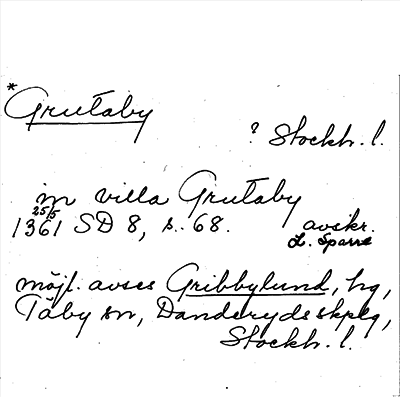 *Grutaby
? Stockh. l.
in villa Grutaby
25/5
1361 SD 8, s. 68. avskr.
L. Sparre
möjl. avses Gribbylund, hg,
Täby sn, Danderyds skplg,
Stockh. l.